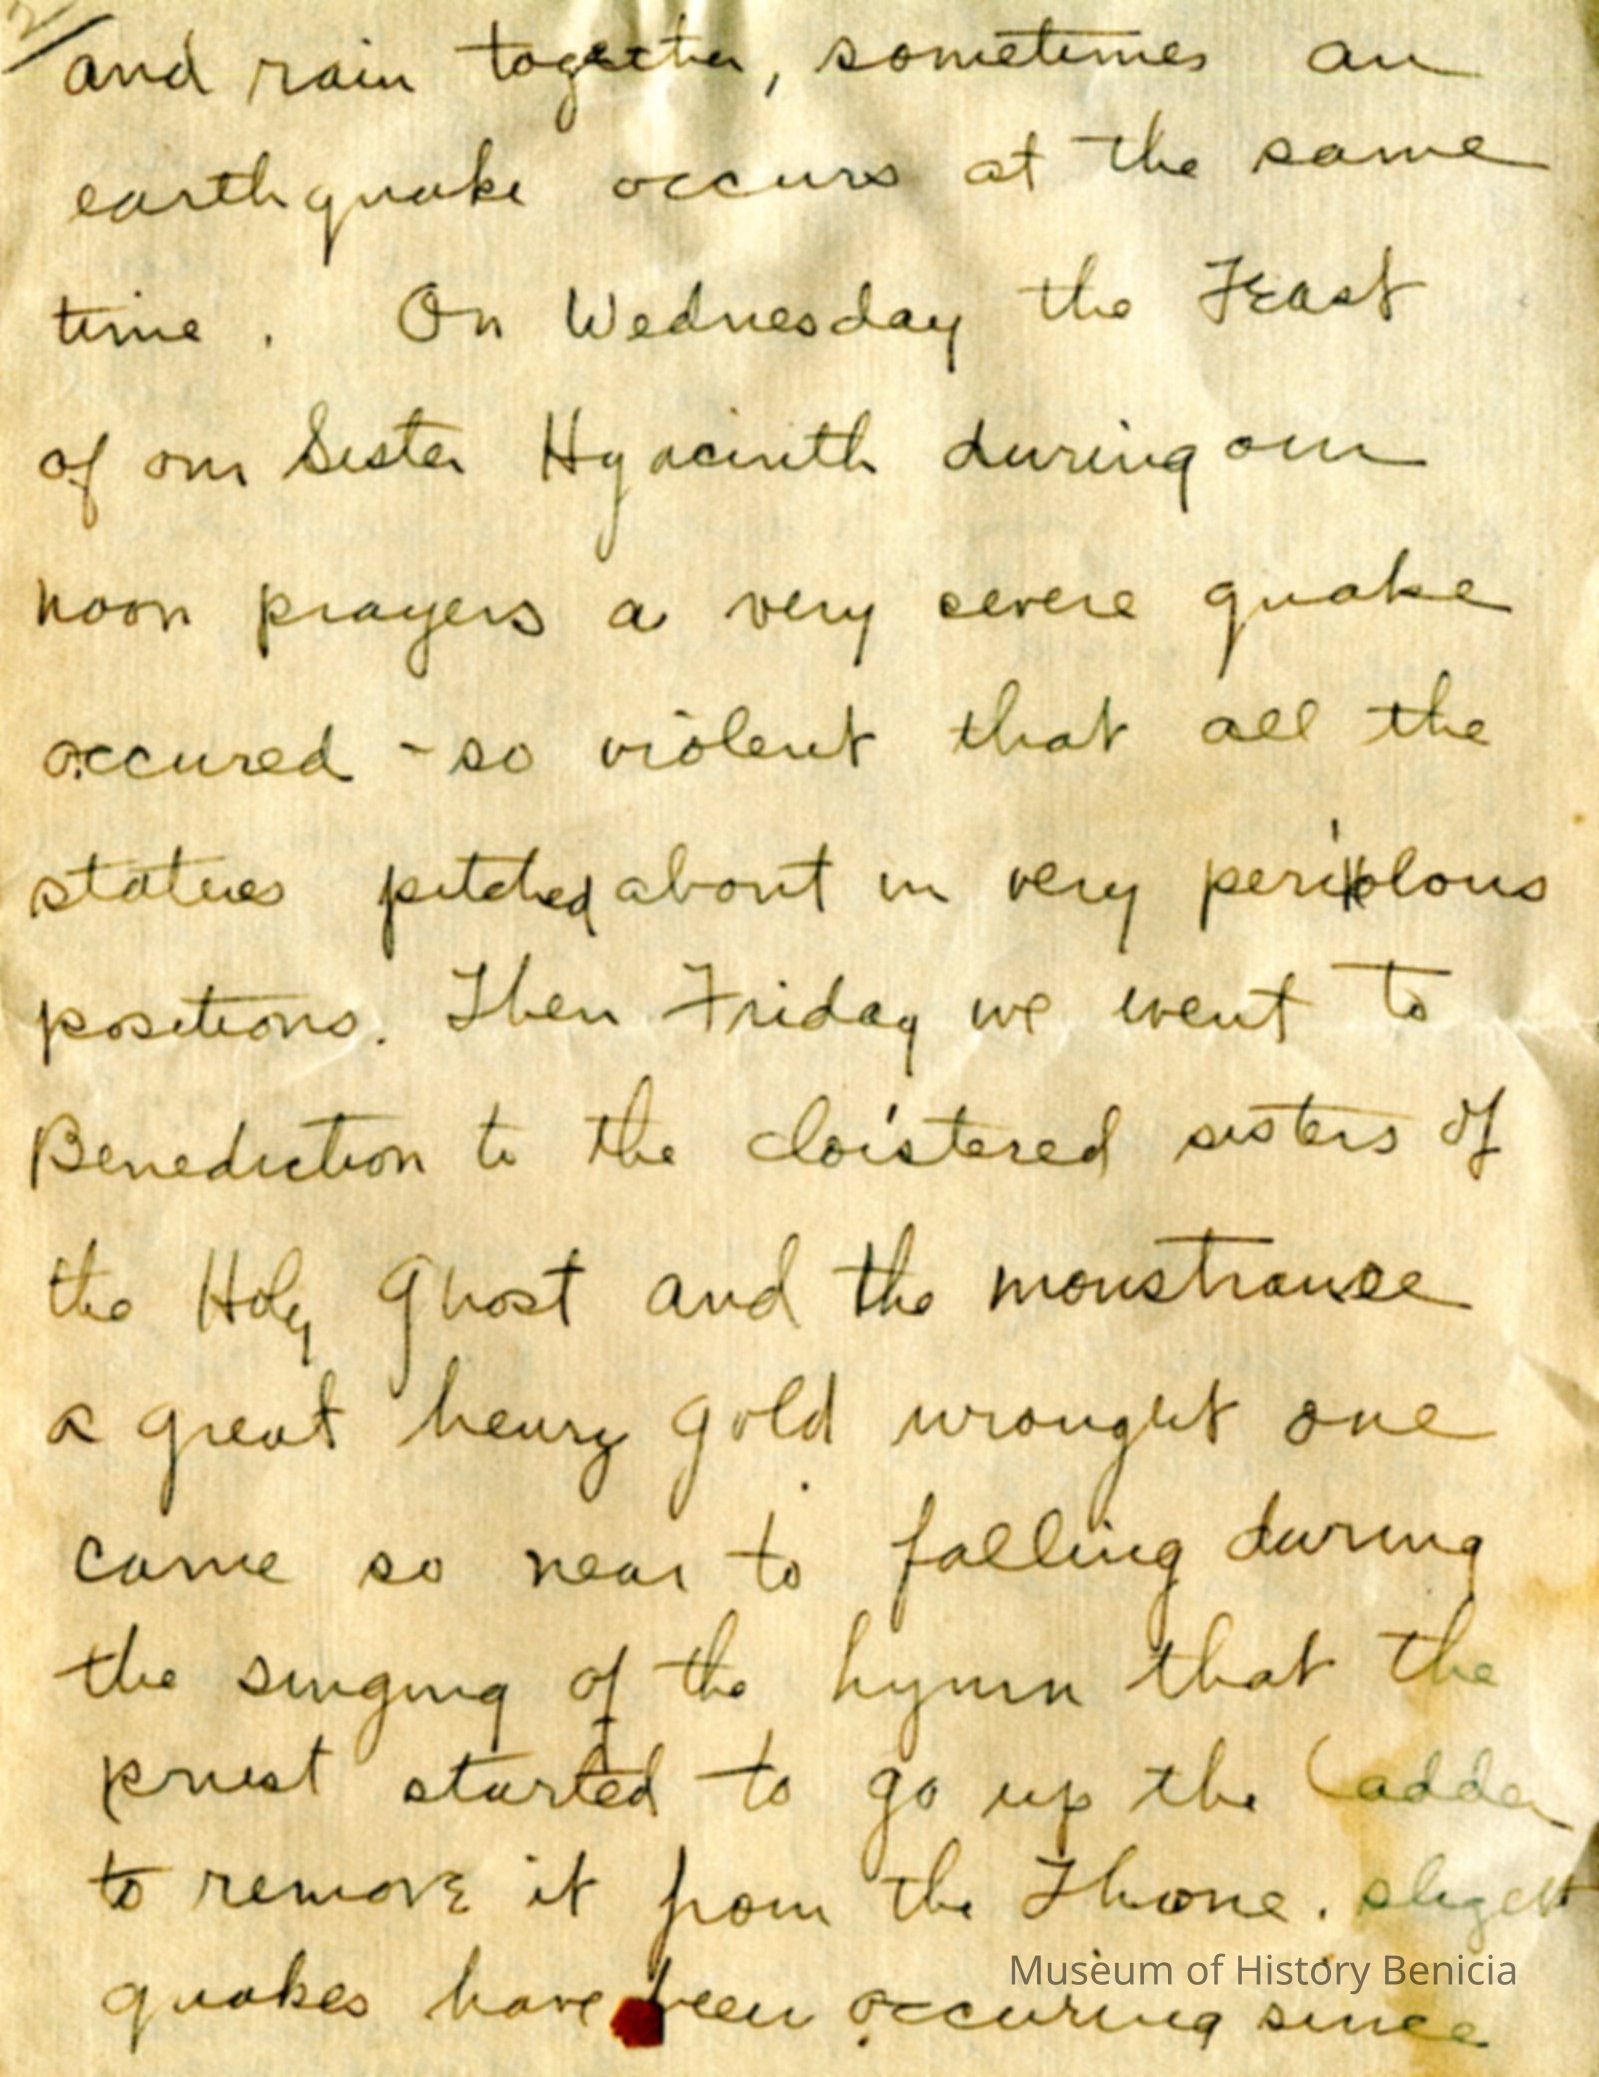 2/
and rain together, sometimes an
earthquake occurs at the same
time. On Wednesday the Feast
of our Sister Hyacinth during our
noon prayers a very severe quake
occured - so violent that all the
statues pitched about in very perilous
positions. Then Friday we went to
Benediction to the cloistered sisters of
the Holy Ghost and the monstrance
a great heavy gold wrought one
came so near to falling during
the singing of the hymn that the
priest started to go up the ladder
to remove it from the Throne. slight
quakes have been occuring since
Museum of History Benicia